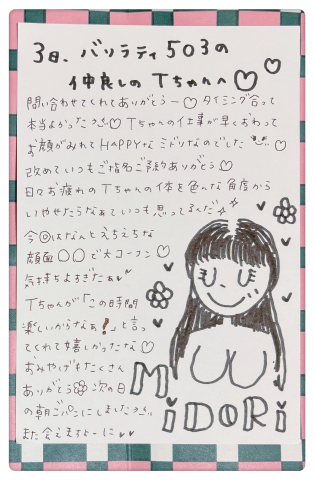 3日、バリラティ503の
仲良しのTちゃんへ♡♡
問い合わせてくれてありがとうー♡タイミング合って
本当よかったっ♡Tちゃんの仕事が早くおわって
お顔がみれてHAPPYなミドリなのでした♡
改めていつもご指名ご予約ありがとう♡
日々お疲れのTちゃんの体を色んな角度から
いやせたらなぁていつも思ってるんだ
今回はなんとえちえちな
顔面〇〇で大コーフン♡
気持ちよすぎたぁ
Tちゃんが「この時間
楽しいからなぁ!」と言っ
てくれて嬉しかったな♡
おみやげもたくさん
ありがとう 次の日
の朝ゴパンにしましたっ
また会えますよーに
MiDORi